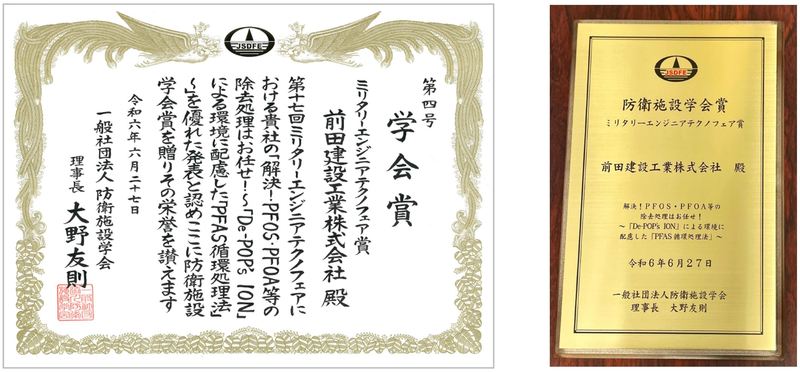 JSDFE
第四号
学会賞
ミリタリーエンジニアテクノフェア賞
前田建設工業株式会社 殿
第十七回ミリタリーエンジニアテクノフェアに
おける貴社の「解決!PFOS・PFOA等の
除去処理はお任せ!~「De-POP's ION」
による環境に配慮した「PFAS循環処理法」
~」を優れた発表と認めここに防衛施設
学会賞を贈りその栄誉を讃えます
令和六年六月二十七日
一般社団法人 防衛施設学会
理事長 大野友則
JSDFE
防衛施設学会賞
ミリタリーエンジニアテクノフェア賞
前田建設工業株式会社 殿
解決!PFOS・PFOA等の
除去処理はお任せ!
~「De-POP's ION」による環境に
配慮した「PFAS循環処理法」~
令和6年6月27日
一般社団法人防衛施設学会
理事長 大野友則